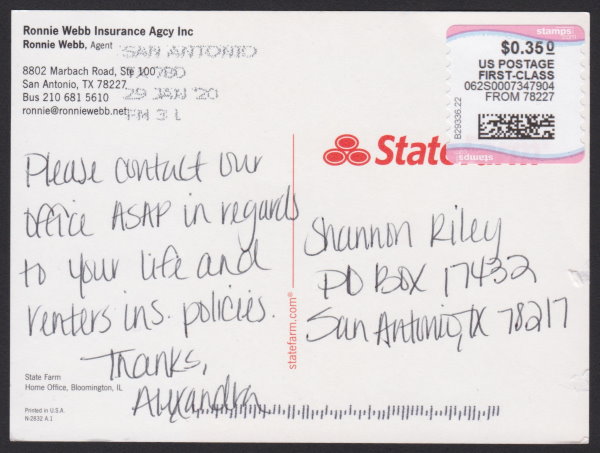 Ronnie Webb Insurance Agcy Inc
Ronnie Webb, Agent
8802 Marbach Road, Ste 100
San Antonio, TX 78227
Bus 210 681 5610
ronnie@ronniewebb.net
SAN ANTONIO
TX 780
29 JAN '20
PM 3 L
stamps.com
$0.35 0
US POSTAGE
FIRST-CLASS
062S0007347904
FROM 78227
B29336.22
stamps
State Farm
Please contact our
office ASAP in regards
to your life and
renters ins. policies.
Thanks,
Alexandra
statefarm.com®
Shannon Riley
PO BOX 17432
San Antonio, TX 78217
State Farm
Home Office, Bloomington, IL
Printed in U.S.A.
N-2832 A.1